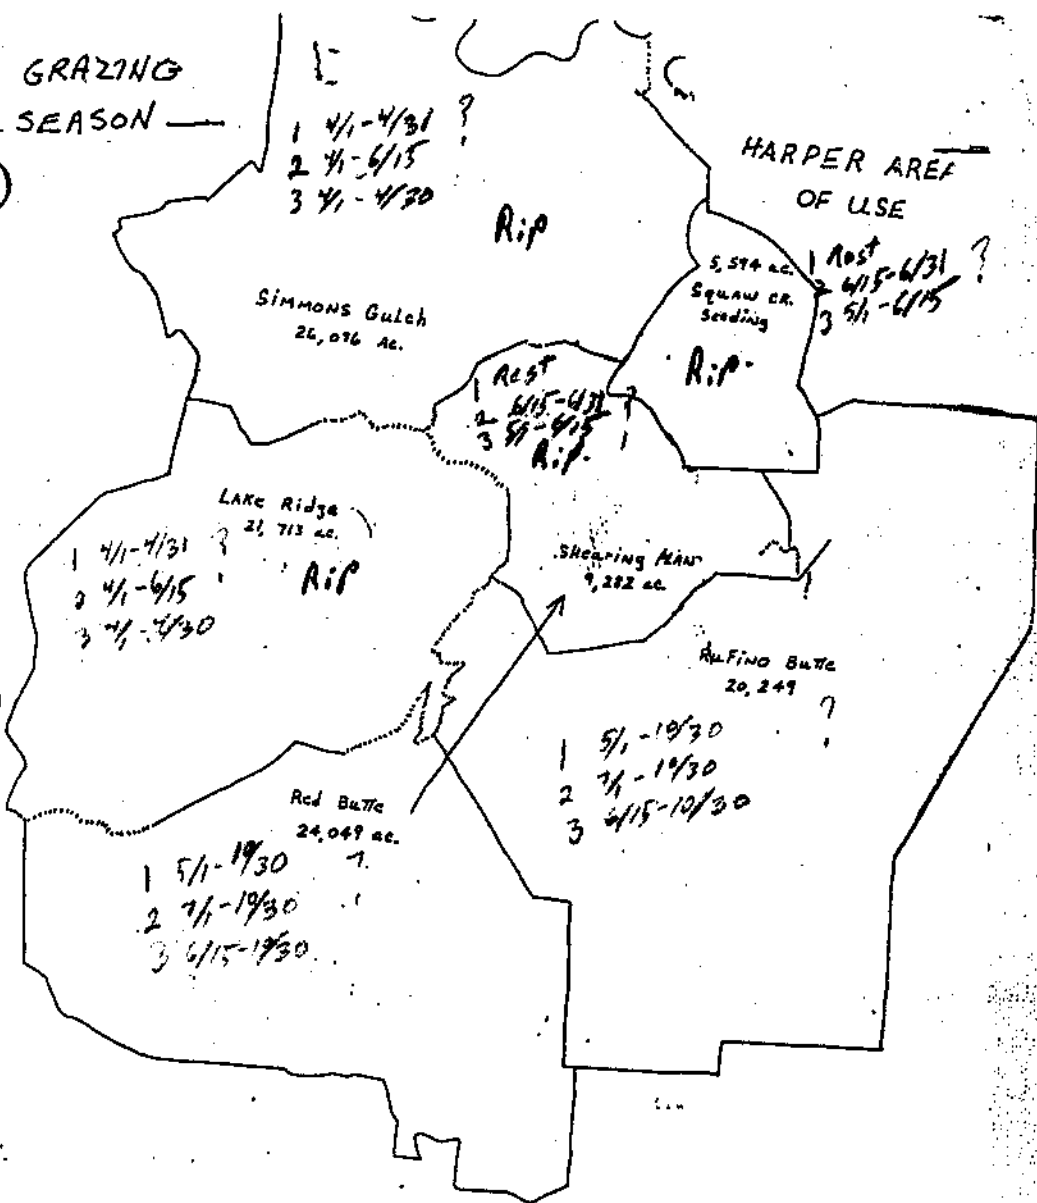 GRAZING
SEASON —
HARPER AREA
OF USE
1 4/1-4/31 ?
2 4/1-6/15
3 4/1-4/30
Rip
SIMMONS Gulch
26,096 Ac.
5,594 ac.
Squaw CR.
Seeding
Rip.
1 Rest
2 6/15-6/31 ?
3 5/1-6/15
1 Rest
2 6/15-6/31 ?
3 5/1-6/15
Rip.
LAKE Ridge
21,713 ac.
1 4/1-4/31 ?
2 4/1-6/15
3 4/1-4/30
Rip
Shearing
9,282 ac.
RuFino Butte
20,249
?
1 5/1-10/30
2 7/1-10/30
3 6/15-10/30
Red Butte
24,049 ac.
1 5/1-10/30 ?
2 7/1-10/30
3 6/15-10/30